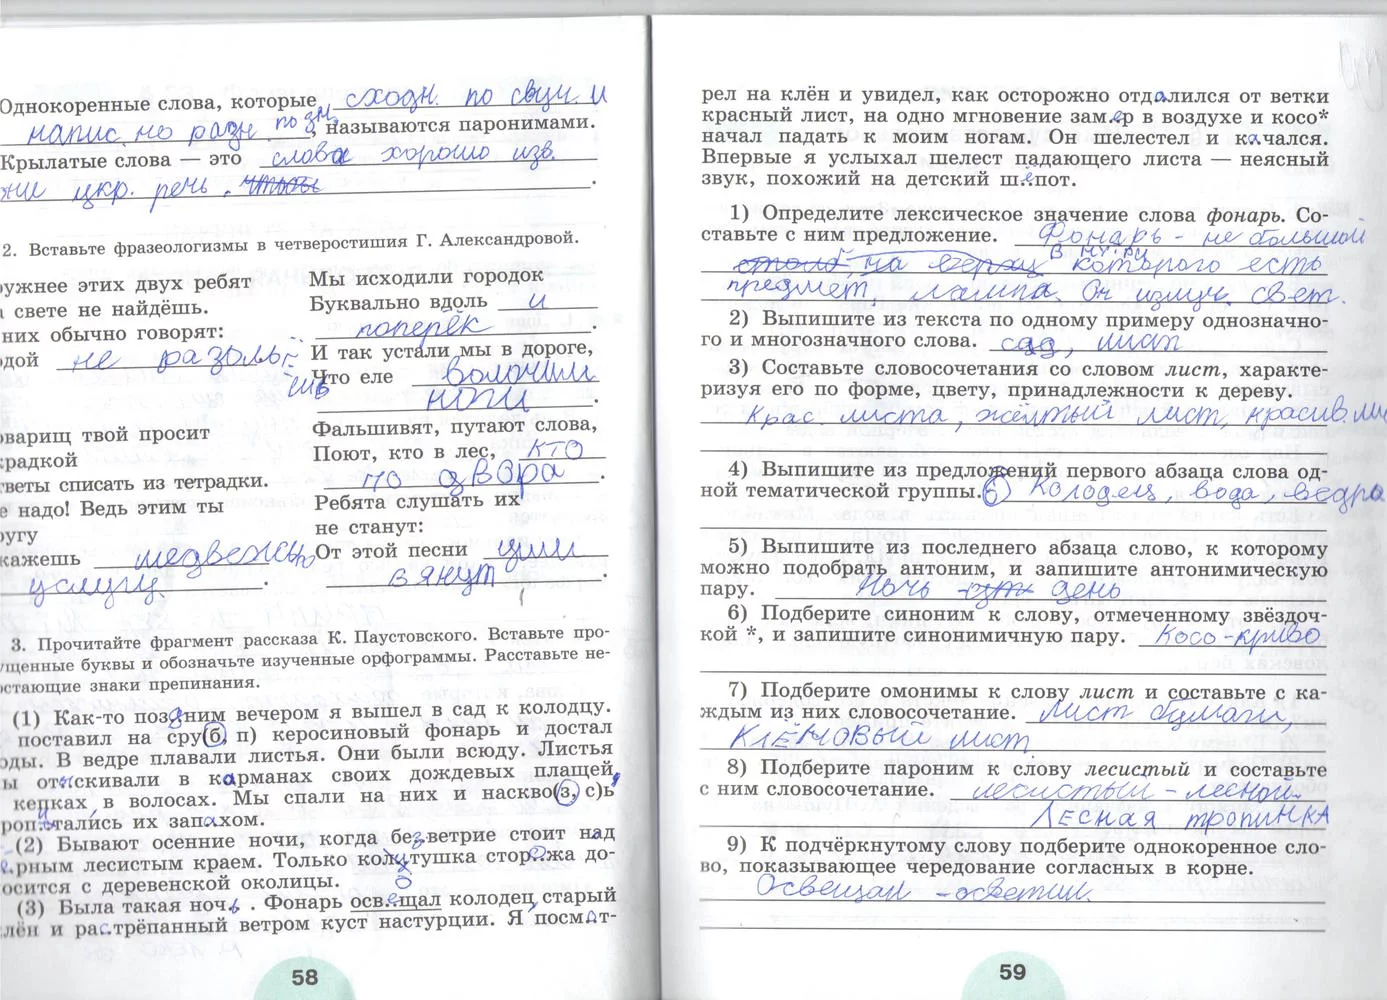 Однокоренные слова, которые сходн. по звуч. и
напис. но разн по зн., называются паронимами.
Крылатые слова — это слова хорошо изв.
укр. речь.
2. Вставьте фразеологизмы в четверостишия Г. Александровой.
ружнее этих двух ребят
а свете не найдёшь.
них обычно говорят:
одой не разольёшь
оварищ твой просит
крадкой
тветы списать из тетрадки.
е надо! Ведь этим ты
ругу
кажешь медвежью
услугу.
Мы исходили городок
Буквально вдоль и
поперёк.
И так устали мы в дороге,
Что еле волочили
ноги.
Фальшивят, путают слова,
Поют, кто в лес, кто
по дрова.
Ребята слушать их
не станут:
От этой песни уши
вянут.
3. Прочитайте фрагмент рассказа К. Паустовского. Вставьте про-
ущенные буквы и обозначьте изученные орфограммы. Расставьте не-
остающие знаки препинания.
(1) Как-то поздним вечером я вышел в сад к колодцу.
поставил на сру(б, п) керосиновый фонарь и достал
оды. В ведре плавали листья. Они были всюду. Листья
ы отыскивали в карманах своих дождевых плащей,
кепках, в волосах. Мы спали на них и наскво(з, с)ь
ропитались их запахом.
(2) Бывают осенние ночи, когда безветрие стоит над
ёрным лесистым краем. Только колотушка сторожа до-
осится с деревенской околицы.
(3) Была такая ночь. Фонарь освещал колодец, старый
лён и растрёпанный ветром куст настурции. Я посмот-
58
рел на клён и увидел, как осторожно отделился от ветки
красный лист, на одно мгновение замер в воздухе и косо*
начал падать к моим ногам. Он шелестел и качался.
Впервые я услыхал шелест падающего листа — неясный
звук, похожий на детский шёпот.
1) Определите лексическое значение слова фонарь. Со-
ставьте с ним предложение. Фонарь - не большой
в нутри которого есть
предмет, лампа. Он излуч. свет.
2) Выпишите из текста по одному примеру однозначно-
го и многозначного слова. сад, лист
3) Составьте словосочетания со словом лист, характе-
ризуя его по форме, цвету, принадлежности к дереву.
Крас. листа, жёлтый лист, красив. ли
4) Выпишите из предложений первого абзаца слова од-
ной тематической группы. Колодец, вода, ведра
5) Выпишите из последнего абзаца слово, к которому
можно подобрать антоним, и запишите антонимическую
пару. Ночь - день
6) Подберите синоним к слову, отмеченному звёздоч-
кой *, и запишите синонимичную пару. Косо-криво
7) Подберите омонимы к слову лист и составьте с ка-
ждым из них словосочетание. Лист бумаги,
клёновый лист
8) Подберите пароним к слову лесистый и составьте
с ним словосочетание. лесистый - лесной.
Лесная тропинка
9) К подчёркнутому слову подберите однокоренное сло-
во, показывающее чередование согласных в корне.
Освещал - осветил.
59